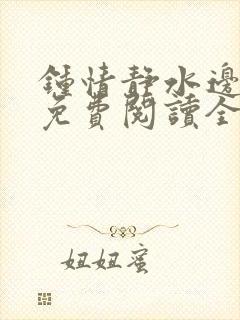 鍾情靜水邊
免費閱讀全
妞妞蜜